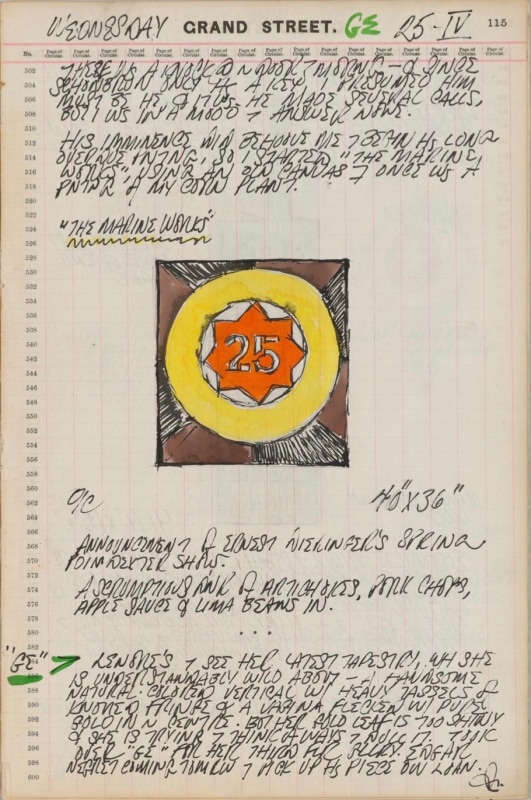 WEDNESDAY GRAND STREET. GE 25-IV 115
No. Page of Circular. Page of Circular. Page of Circular. Page of Circular. Page of Circular. Page of Circular. Page of Circular. Page of Circular. Page of Circular. Page of Circular. Page of Circular. Page of Circular. Page of Circular. Page of Circular.
502 THERE IS A KNOCK DOOR & SINCE
504 ONLY HAS A KEY I PRESUMED HIM
506 MUST BE HE & IT WS. HE MADE SEVERAL CALLS,
508 BUT I WS IN A MOOD ANSWER NONE.
510
512 HIS IMMINENCE BEHOOVE ME BEGIN HS LONG
514 OVERDUE PNTING, SO I STARTED "THE MARINE
516 WORKS" USING AN OLD CANVAS ONCE WS A
518 PNTNG MY CORN PLANT.
520
522
524 "THE MARINE WORKS"
526
528
530
532
534
536
538
540
542 25
544
546
548
550
552
554
556
558
560
562 O/C 40"X36"
564
566
568 ANNOUNCEMENT OF ERNEST BRIGGS' SPRING
570 POINDEXTER SHOW.
572
574 A SCRUMPTIOUS DNR OF ARTICHOKES, PORK CHOPS,
576 APPLE SAUCE & LIMA BEANS IN.
578
580 • • •
582
584 "GE" > LENORE'S SEE HER LATEST TAPESTRY, WH SHE
586 IS UNDERSTANDABLY WILD ABOUT - A HANDSOME
588 NATURAL-COLORED VERTICAL W/ HEAVY TASSELS &
590 KNOTTED FRINGE & A VAGINA FLECKED W/ PURE
592 GOLD IN CENTRE. BUT HER GOLD LEAF IS TOO SHINY
594 & SHE IS TRYING THINK OF WAYS DULL IT. TOOK
596 OVER "GE" FOR HER
598 COMING TOMRW PICK UP HS PIECE ON LOAN.
600